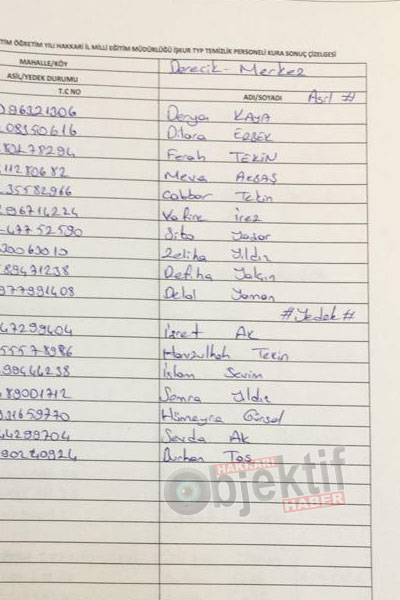 TİM ÖĞRETİM YILI HAKKARİ İL MİLLİ EĞİTİM MÜDÜRLÜĞÜ İŞKUR TYP TEMİZLİK PERSONELİ KURA SONUÇ ÇİZELGESİ
MAHALLE/KÖY Derecik - Merkez
ASİL/YEDEK DURUMU
T.C NO ADI/SOYADI Asil #
096321306 Derya KAYA
08350616 Dilara ERBEK
80278294 Ferah TEKİN
11280682 Merva AKBAŞ
35582966 Cabbar Tekin
296714224 Vafire İrez
47752590 Sito Yaşar
30063010 Zeliha Yıldız
89471238 Defiha Yakın
977991408 Delal Yaman
# Yedek #
47299404 İzzet AK
55578986 Hamzullah Tekin
99446238 İslam Sevim
489001712 Semra Yıldız
931659770 Hümeyra Gürsel
44299704 Sevda Ak
90240924 Burhan Taş
HAKKARİ
Objektif
HABER